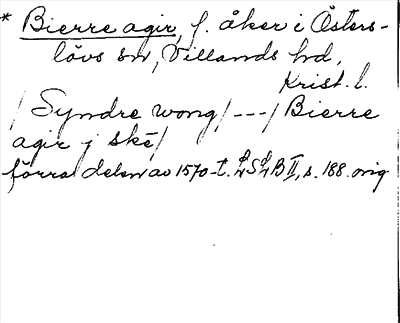 * Bierre agir, f. åker i Östers-
lövs sn, Villands hd,
Krist. l.
/ Syndre wong / --- / Bierre
agir j ske /
förra delen av 1570-t. LSLB II, s. 188. orig